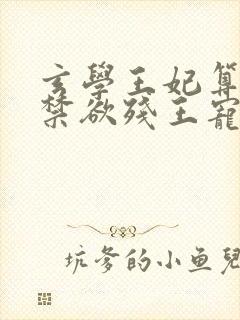 玄學王妃算
禁欲殘王寵
坑爹的小鱼兒